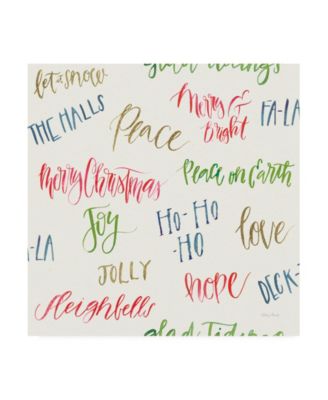 glad tidings
let it snow
Merry &
bright
FA-LA
THE HALLS
Peace
Merry Christmas
Peace on Earth
Joy
HO-HO
-HO
love
-LA
JOLLY
hope
DECK-T
Sleighbells
glad Tidings